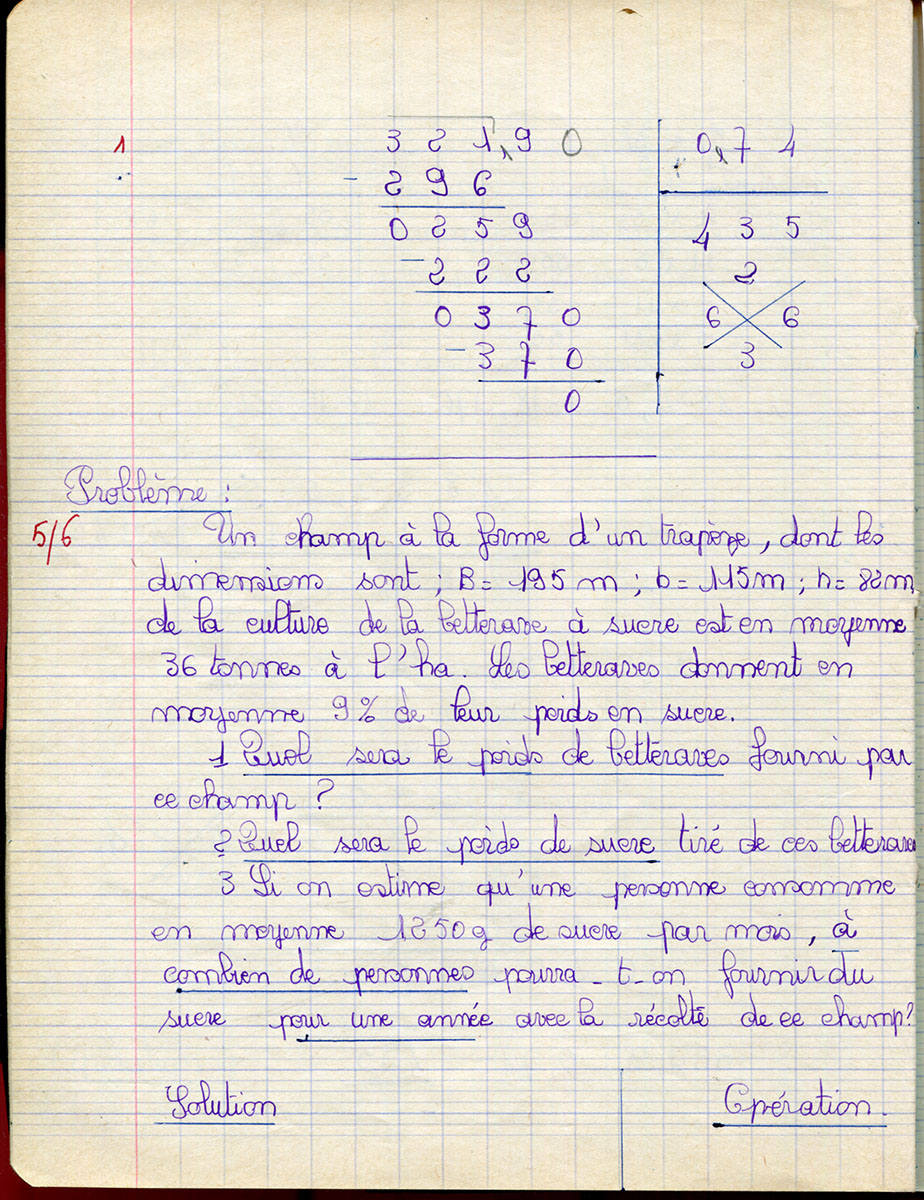 1 3 2 1,9 0 0,7 4
- 2 9 6
0 2 5 9 4 3 5
- 2 2 2 2
0 3 7 0 6 6
- 3 7 0 3
0
Problème :
5/6 Un champ à la forme d'un trapèze, dont les
dimensions sont ; B = 195 m ; b = 115m ; h = 82m
de la culture de la betterave à sucre est en moyenne
36 tonnes à l'ha. Les betteraves donnent en
moyenne 9% de leur poids en sucre.
1 Quel sera le poids de betteraves fourni par
ce champ ?
2 Quel sera le poids de sucre tiré de ces betterave
3 Si on estime qu'une personne consomme
en moyenne 1250g de sucre par mois, à
combien de personnes pourra-t-on fournir du
sucre pour une année avec la récolté de ce champ?
Solution Opération.